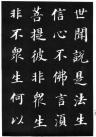 世聞說是法生
信心不佛言須
菩提彼非眾生
非不眾生何以